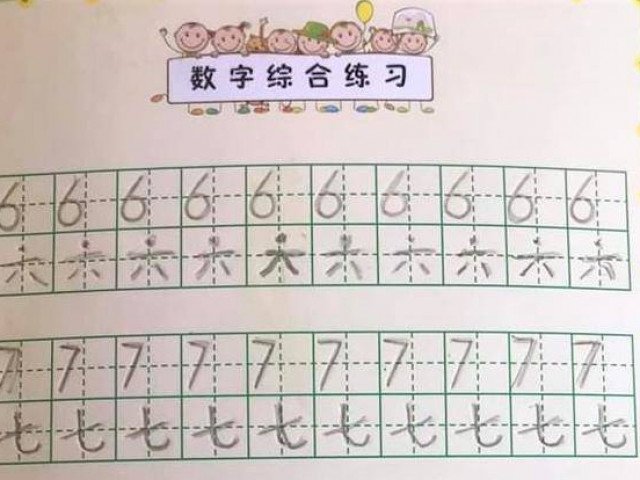 数字综合练习
6 6 6 6 6 6 6 6 6 6
六 六 六 六 六 六 六 六 六 六
7 7 7 7 7 7 7 7 7 7
七 七 七 七 七 七 七 七 七 七